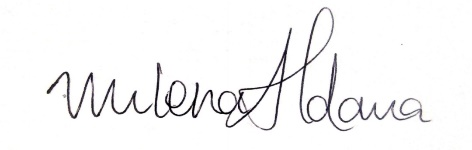 Milena Aldana